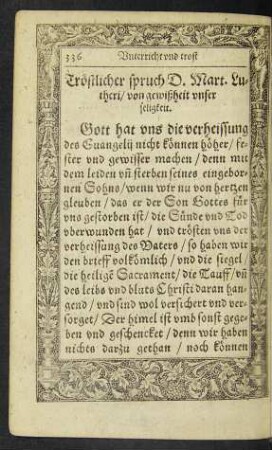 336 Vnterricht vnd trost
Tröstlicher spruch D. Mart. Lu-
theri / von gewißheit vnser
seligkeit.
Gott hat vns die verheissung
des Euangelij nicht können höher / fe-
ster vnd gewisser machen / denn mit
dem leiden vñ sterben seines eingebor-
nen Sohns / wenn wir nu von hertzen
gleuben / das er der Son Gottes für
vns gestorben ist / die Sünde vnd Tod
vberwunden hat / vnd trösten vns der
verheissung des Vaters / so haben wir
den brieff volkömlich / vnd die siegel /
die heiligẽ Sacrament / die Tauff / vñ
des leibs vnd bluts Christi daran han-
gend / vnd sind wol versichert vnd ver-
sorget / Der himel ist vmb sonst gege-
ben vnd geschencket / denn wir haben
nichts darzu gethan / noch können